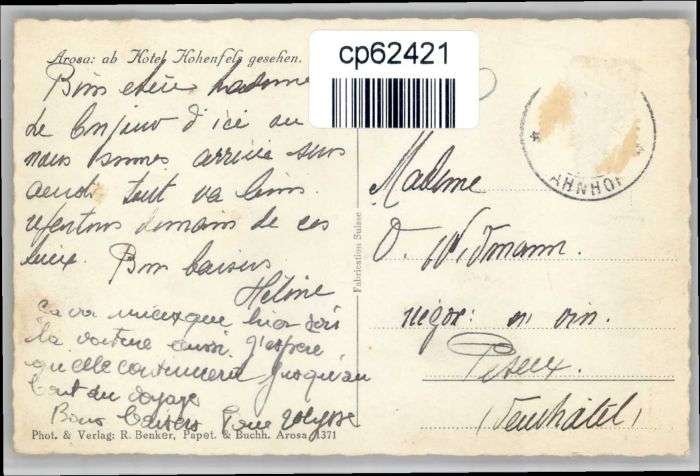 cp62421
Arosa: ab Hotel Hohenfels gesehen.
Bien chère Madame
Le bonjour d'ici ou
nous sommes arrivée sans
Tout va bien.
demain de ces
lieux. Bons baisers
Hélène
ça va mieux que hier soir
la voiture aussi. J'espère
qu'elle continuera jusqu'au
bout du voyage
Bons baisers
Phot. & Verlag: R. Benker, Papet. & Buchh. Arosa 1371
Fabrication Suisse
BAHNHO
Madame
O. Widmann.
négoc: en vin.
Peseux.
(Neuchâtel)